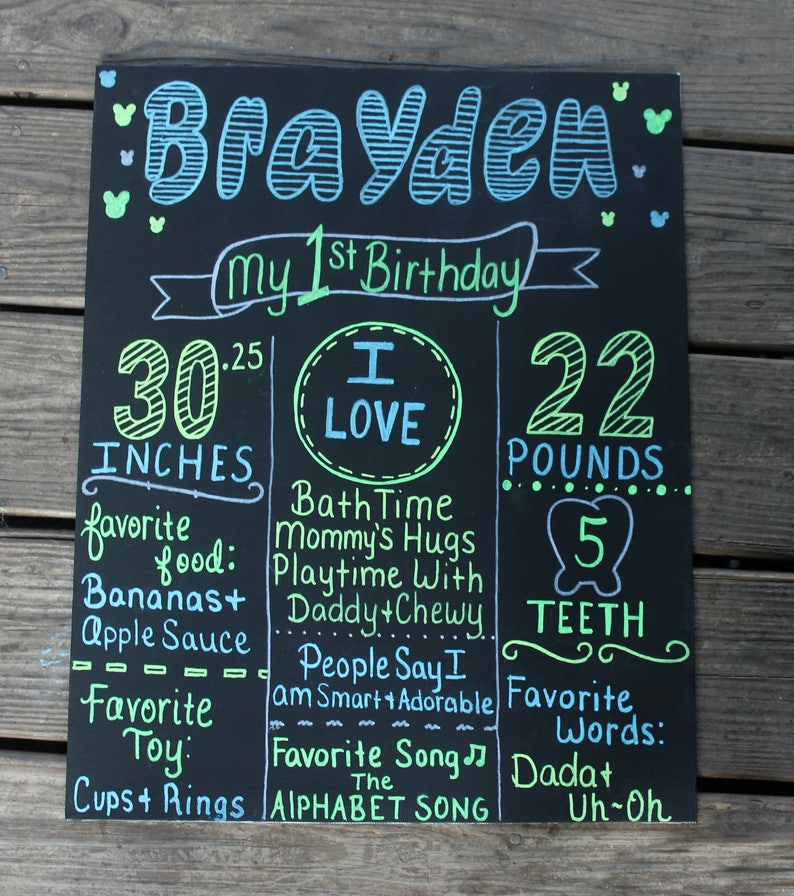 Brayden
My 1st Birthday
30.25
INCHES
favorite
food:
Bananas+
Apple Sauce
Favorite
Toy:
Cups+ Rings
I
LOVE
Bath Time
Mommy's Hugs
Playtime With
Daddy+Chewy
People Say I
am Smart+Adorable
Favorite Song♫
The
AlPHABET SONG
22
POUNDS
5
TEETH
Favorite
Words:
Dada+
Uh~Oh